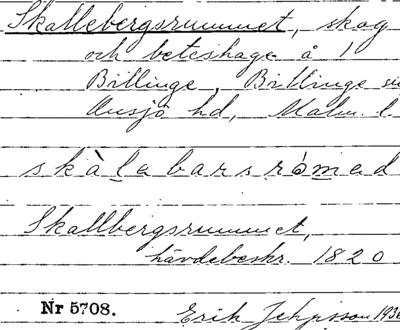 Skallebergsrummet, skog
och beteshage å 1
Billinge, Billinge sn
Onsjö hd, Malm. l.
skàlabarsrómad
Skallbergsrummet,
hävdebeskr. 1820
Nr 5708.
Erik Jeppsson 1930